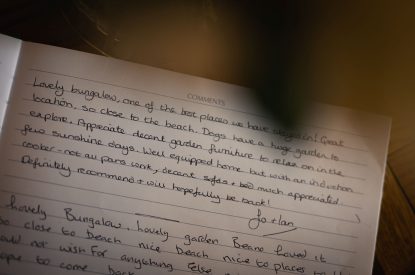 COMMENTS
Lovely bungalow, one of the best places we have stayed in! Great
location, so close to the beach. Dogs have a huge garden to
explore. Appreciate decent garden furniture to relax on the
few sunshine days. Well equipped home but with an induction
cooker - not all pans work, decent sofas + bed much appreciated.
Definitely recommend + will hopefully be back!
Jo + Ian
Lovely Bungalow, lovely garden Beano loved it
so close to beach nice beach nice to places
would not wish for anything Else
hope to come back